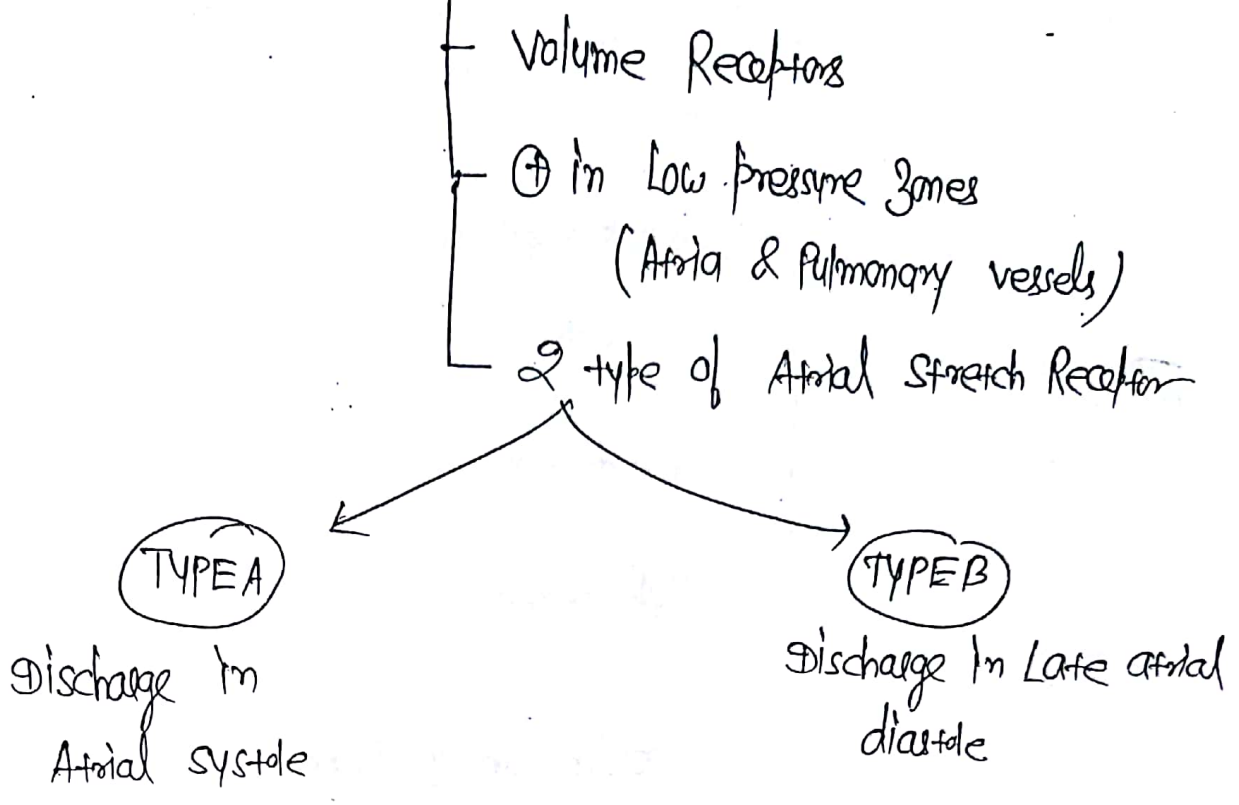 Volume Receptors
⊕ in Low pressure Zones
(Atria & Pulmonary vessels)
2 type of Atrial Stretch Receptor
TYPE A
TYPE B
Discharge in
Atrial systole
Discharge in Late atrial
diastole